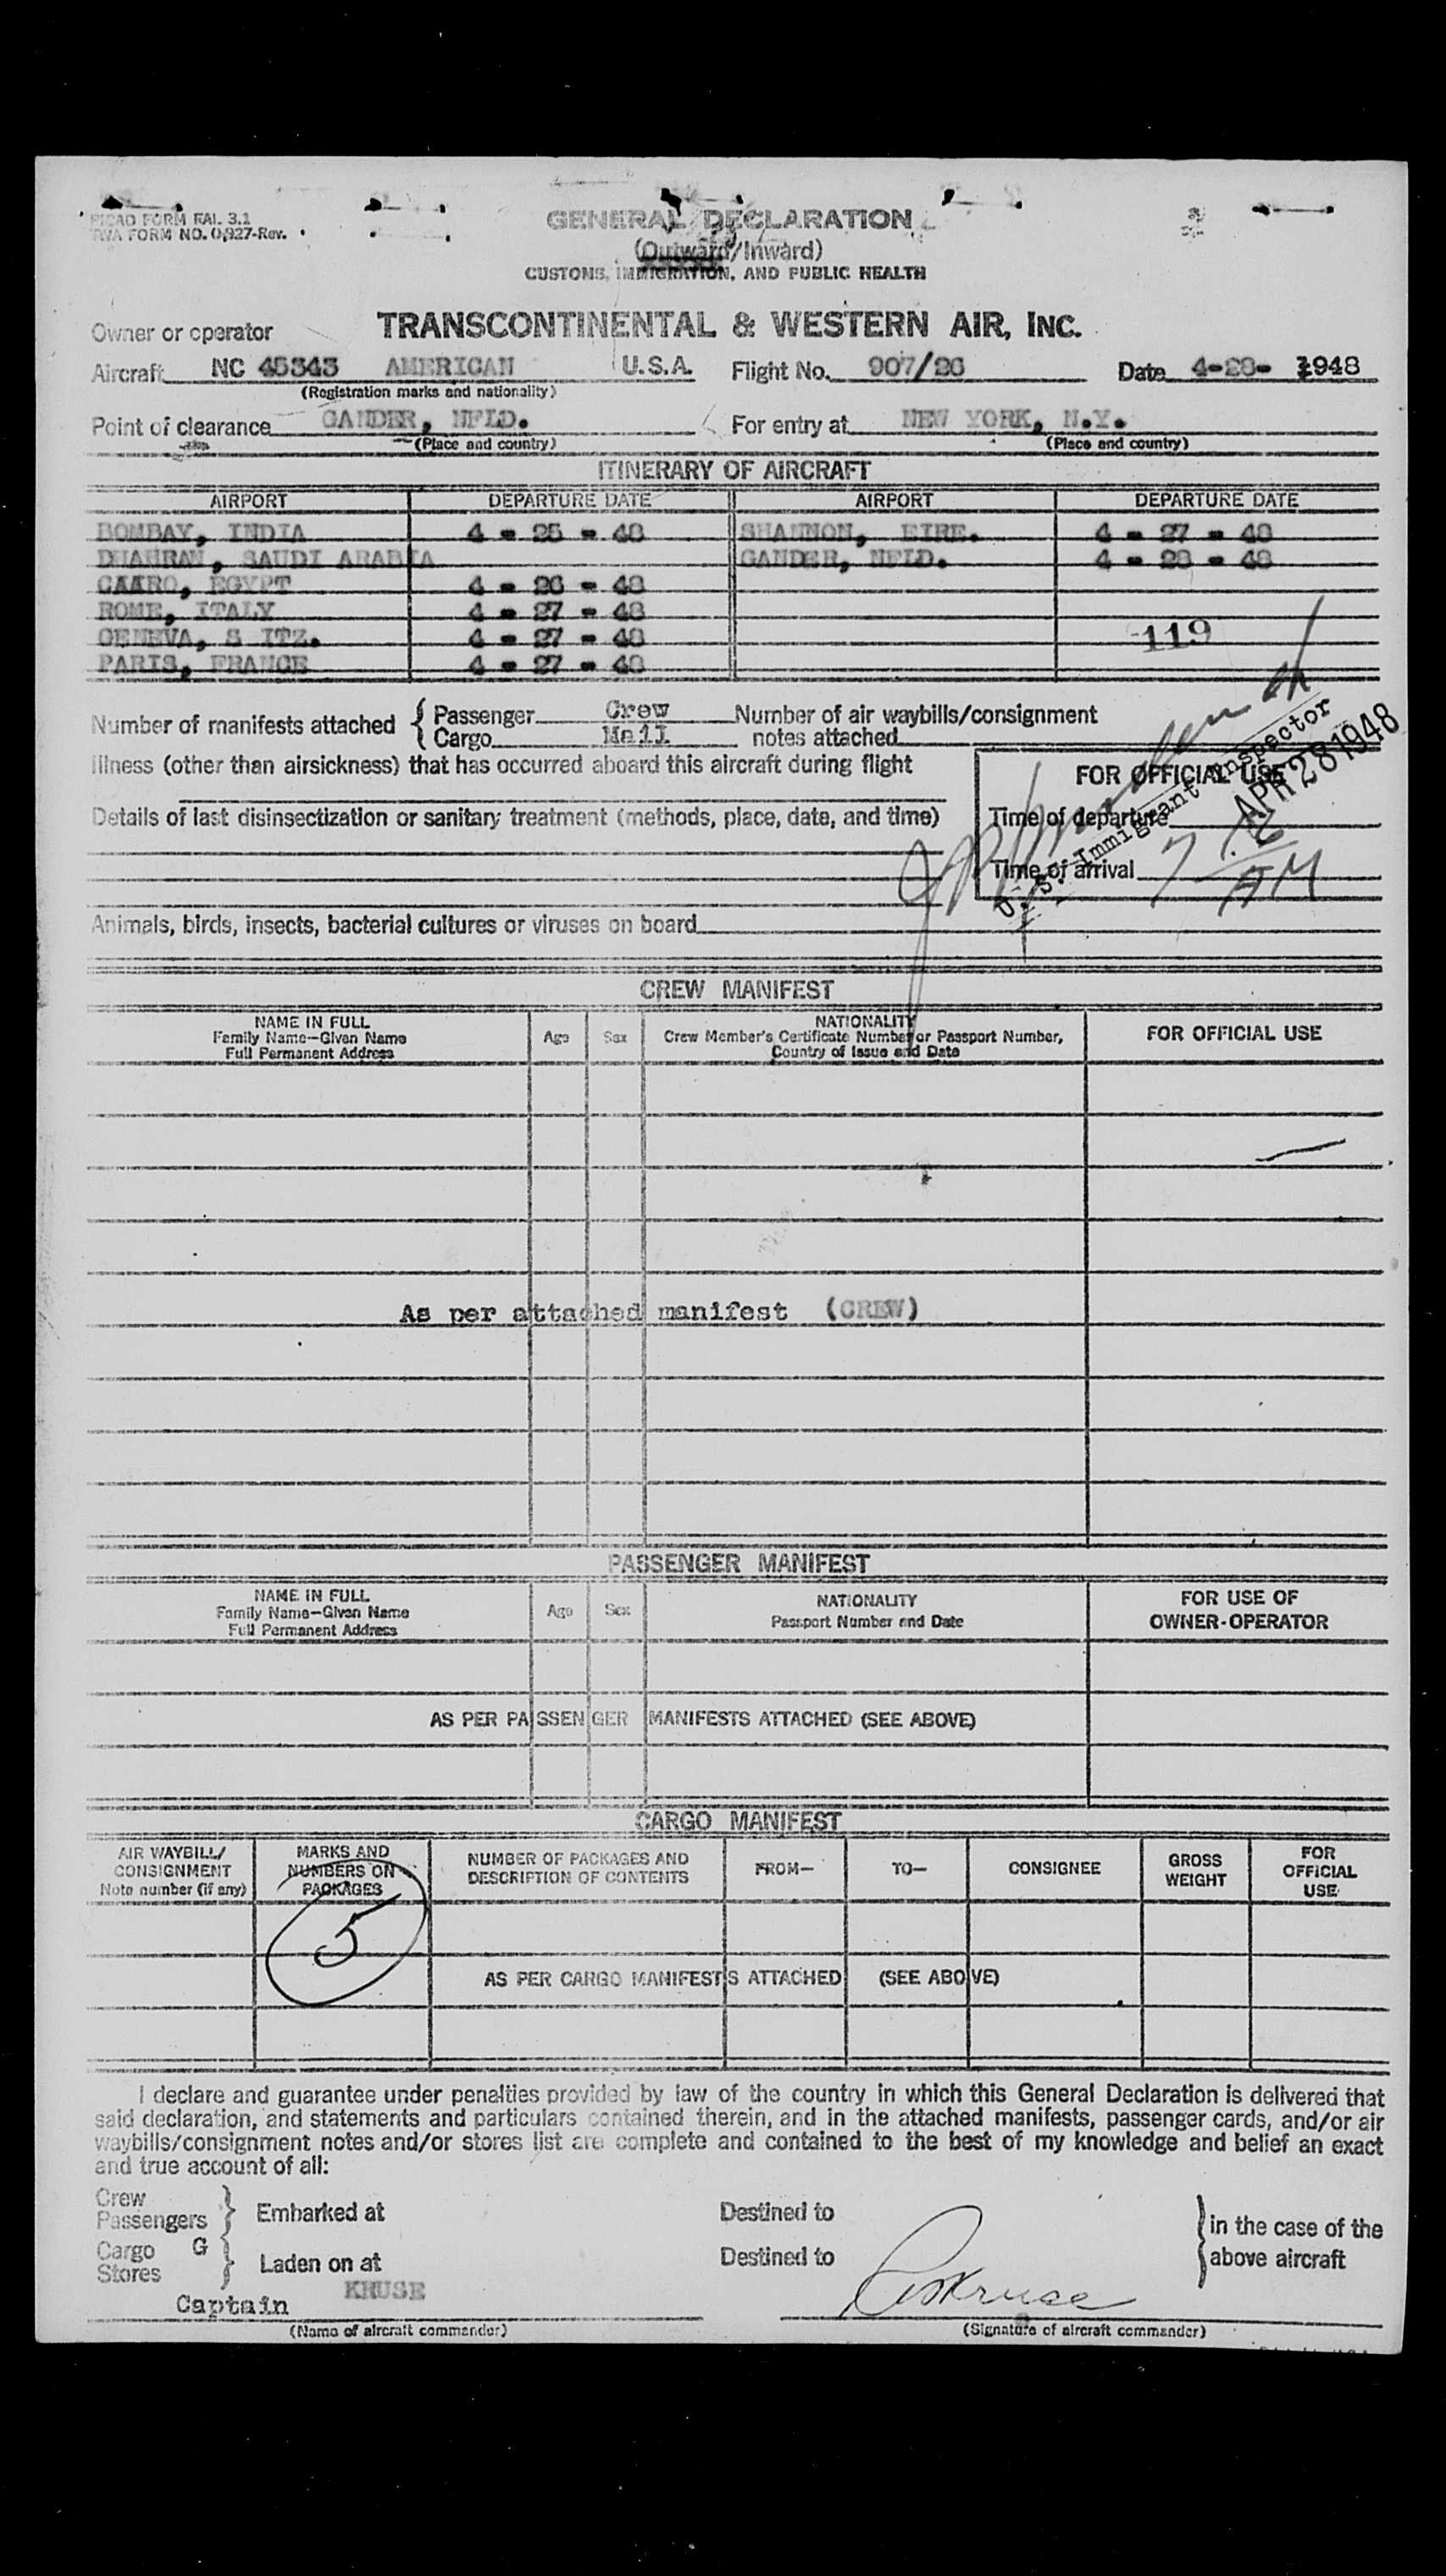 PICAO FORM FAI. 3.1
TWA FORM NO. O,927-Rev.
GENERAL DECLARATION
(Outward/Inward)
CUSTOMS, IMMIGRATION, AND PUBLIC HEALTH
Owner or operator TRANSCONTINENTAL & WESTERN AIR, INC.
Aircraft NC 45343 AMERICAN U.S.A. Flight No. 907/26 Date 4-28- 1948
(Registration marks and nationality)
Point of clearance GANDER, NFLD. For entry at NEW YORK, N.Y.
(Place and country) (Place and country)
ITINERARY OF AIRCRAFT
AIRPORT DEPARTURE DATE AIRPORT DEPARTURE DATE
BOMBAY, INDIA 4 - 25 - 48 SHANNON, EIRE. 4 - 27 - 48
DHAHRAN, SAUDI ARABIA GANDER, NFLD. 4 - 28 - 48
CAARO, EGYPT 4 - 26 - 48
ROME, ITALY 4 - 27 - 48
GENEVA, S ITZ. 4 - 27 - 48 119
PARIS, FRANCE 4 - 27 - 48
Number of manifests attached { Passenger Crew Number of air waybills/consignment
Cargo Mail notes attached
Illness (other than airsickness) that has occurred aboard this aircraft during flight
FOR OFFICIAL USE
U. S. Immigrant Inspector
APR 28 1948
Details of last disinsectization or sanitary treatment (methods, place, date, and time)
Time of departure
Time of arrival 7 AM
Animals, birds, insects, bacterial cultures or viruses on board
CREW MANIFEST
NAME IN FULL Age Sex NATIONALITY FOR OFFICIAL USE
Family Name—Given Name Crew Member's Certificate Number or Passport Number,
Full Permanent Address Country of Issue and Date
As per attached manifest (CREW)
PASSENGER MANIFEST
NAME IN FULL Age Sex NATIONALITY FOR USE OF
Family Name—Given Name Passport Number and Date OWNER-OPERATOR
Full Permanent Address
AS PER PASSENGER MANIFESTS ATTACHED (SEE ABOVE)
CARGO MANIFEST
AIR WAYBILL/ MARKS AND NUMBER OF PACKAGES AND FROM— TO— CONSIGNEE GROSS FOR
CONSIGNMENT NUMBERS ON DESCRIPTION OF CONTENTS WEIGHT OFFICIAL
Note number (if any) PACKAGES USE
5
AS PER CARGO MANIFESTS ATTACHED (SEE ABOVE)
I declare and guarantee under penalties provided by law of the country in which this General Declaration is delivered that
said declaration, and statements and particulars contained therein, and in the attached manifests, passenger cards, and/or air
waybills/consignment notes and/or stores list are complete and contained to the best of my knowledge and belief an exact
and true account of all:
Crew
Passengers } Embarked at Destined to } in the case of the
Cargo G
Stores } Laden on at Destined to above aircraft
Captain KRUSE
(Name of aircraft commander) (Signature of aircraft commander)